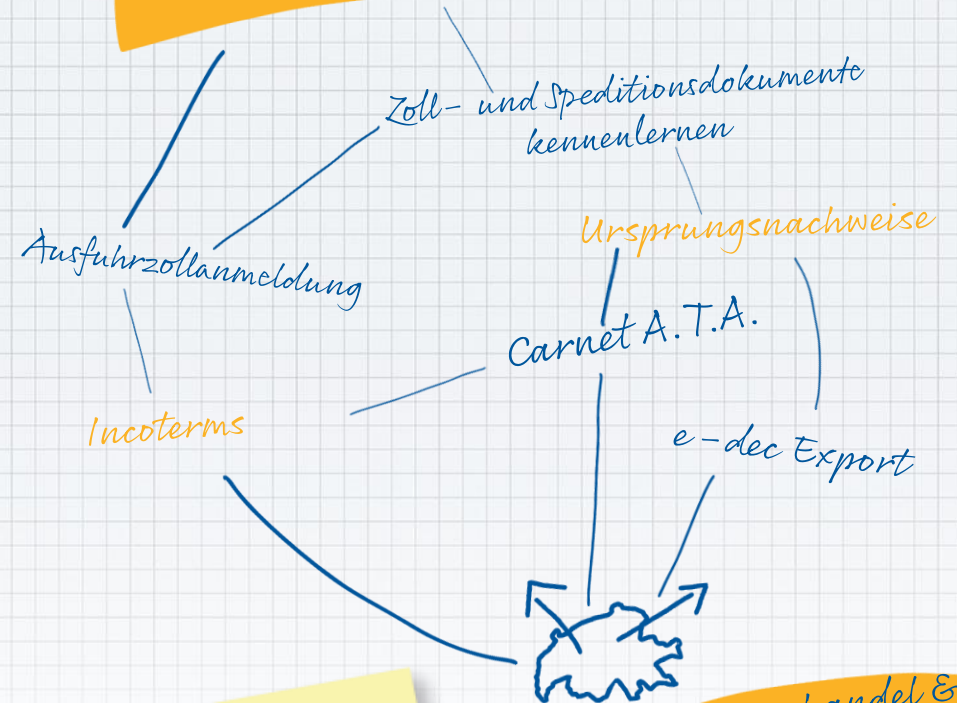 Zoll- und Speditionsdokumente
kennenlernen
Ursprungsnachweise
Ausfuhrzollanmeldung
Carnet A.T.A.
Incoterms
e-dec Export
&